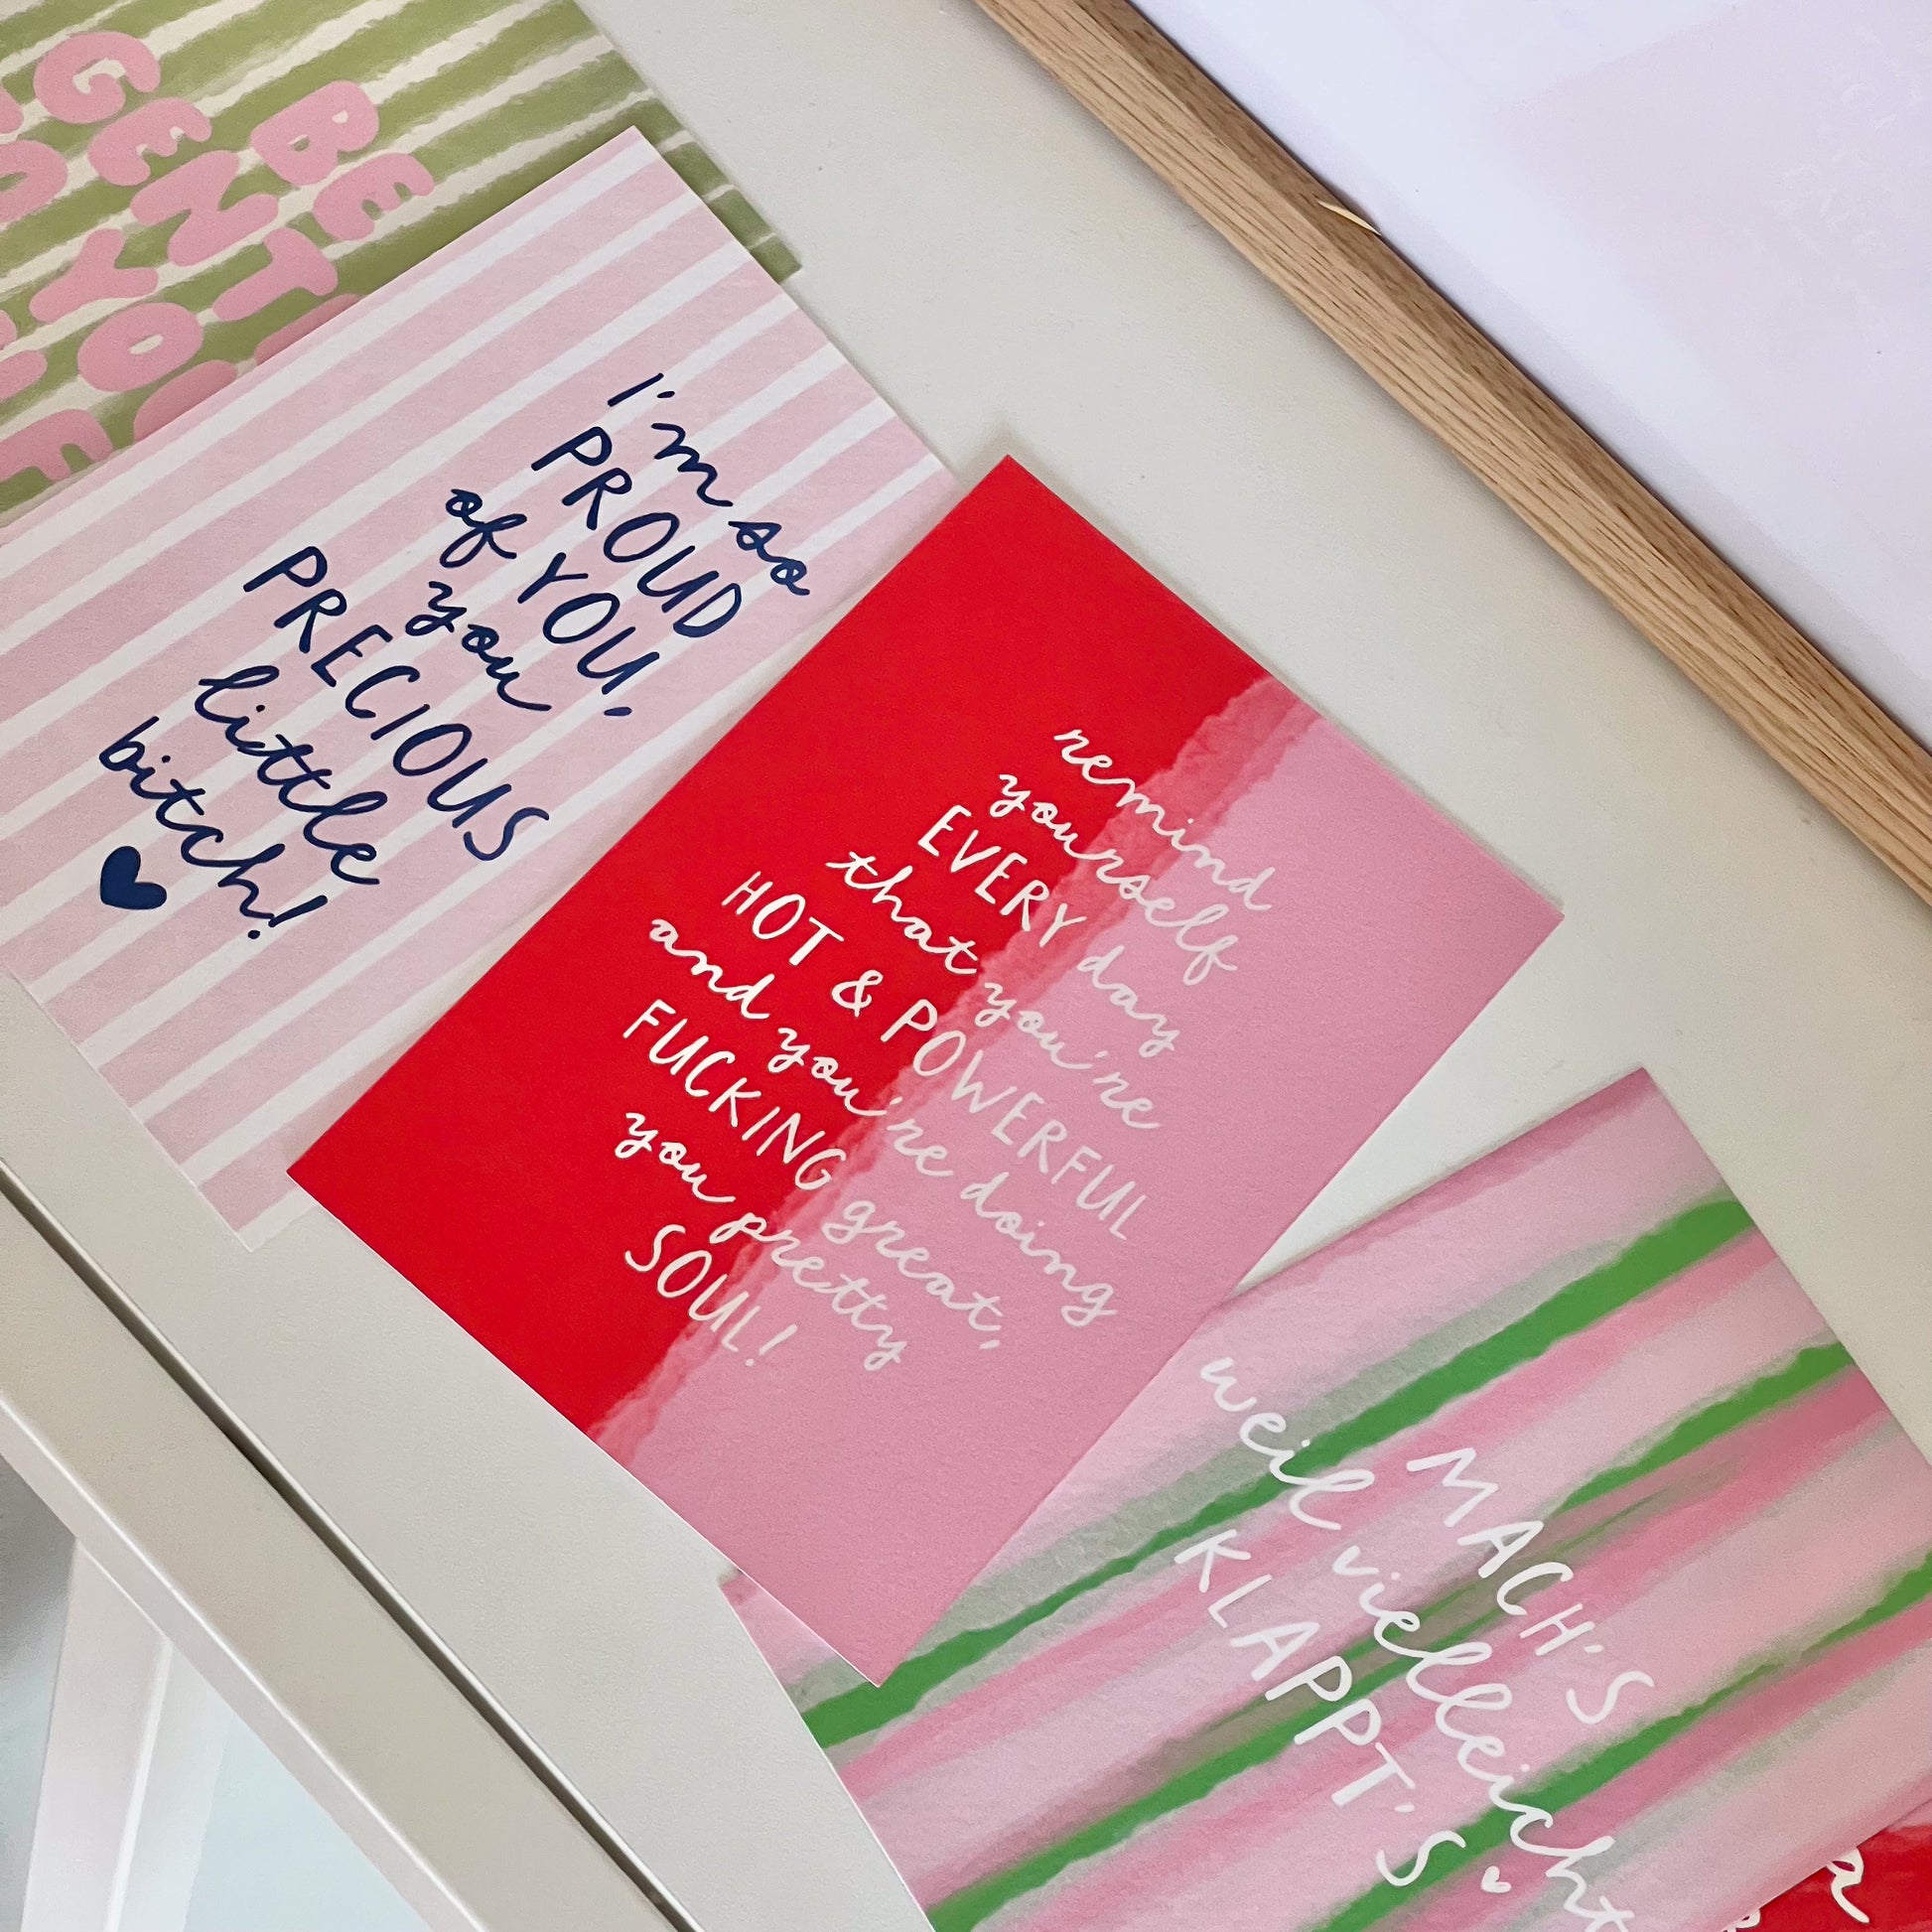 BE
I'm so
PROUD
of YOU,
you
PRECIOUS
little
bitch!
remind
yourself
EVERY day
that you're
HOT & POWERFUL
and you're doing
FUCKING great,
you pretty
SOUL!
MACH'S
weil vielleicht
KLAPPT'S